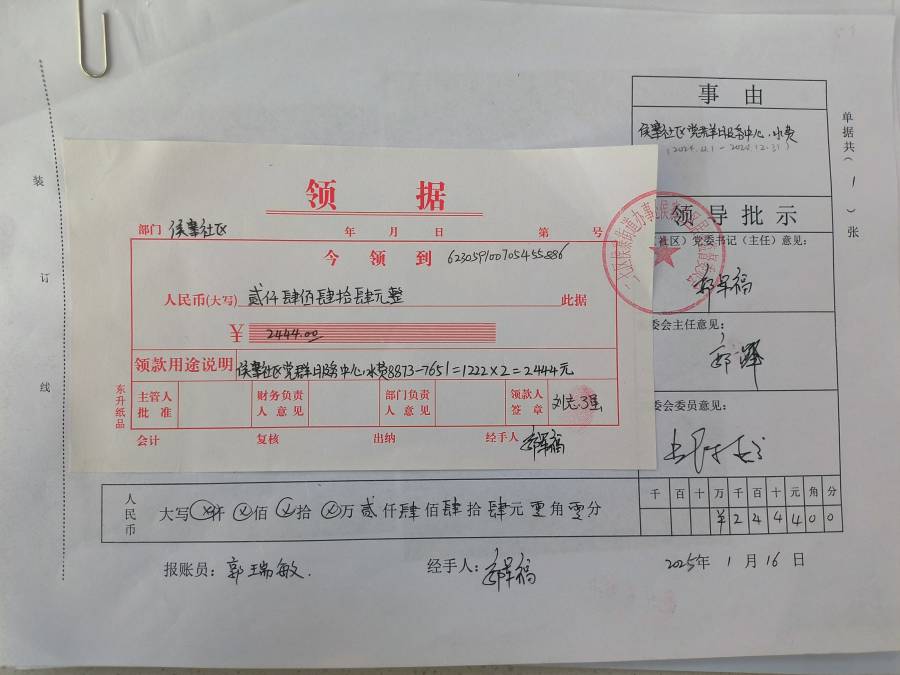 事由
侯寨社区党群服务中心水费
(2024.4.1-2024.12.31)
单据共(1)张
领导批示
社区)党委书记(主任)意见:
委会主任意见:
委会委员意见:
千百十万千百十元角分
¥244400
装
订
线
领 据
部门 侯寨社区 年 月 日 第 号
今领到 6230591007054555886
人民币(大写) 贰仟肆佰肆拾肆元整 此据
¥ 2444.00
领款用途说明 侯寨社区党群服务中心水费8873-7651=1222×2=2444元
主管人批准 财务负责人意见 部门负责人意见 领款人签章 刘志强
会计 复核 出纳 经手人
东升纸品
人民币 大写 仟 佰 拾 万 贰仟肆佰肆拾肆元零角零分
报账员:郭瑞敏. 经手人:
2025年1月16日